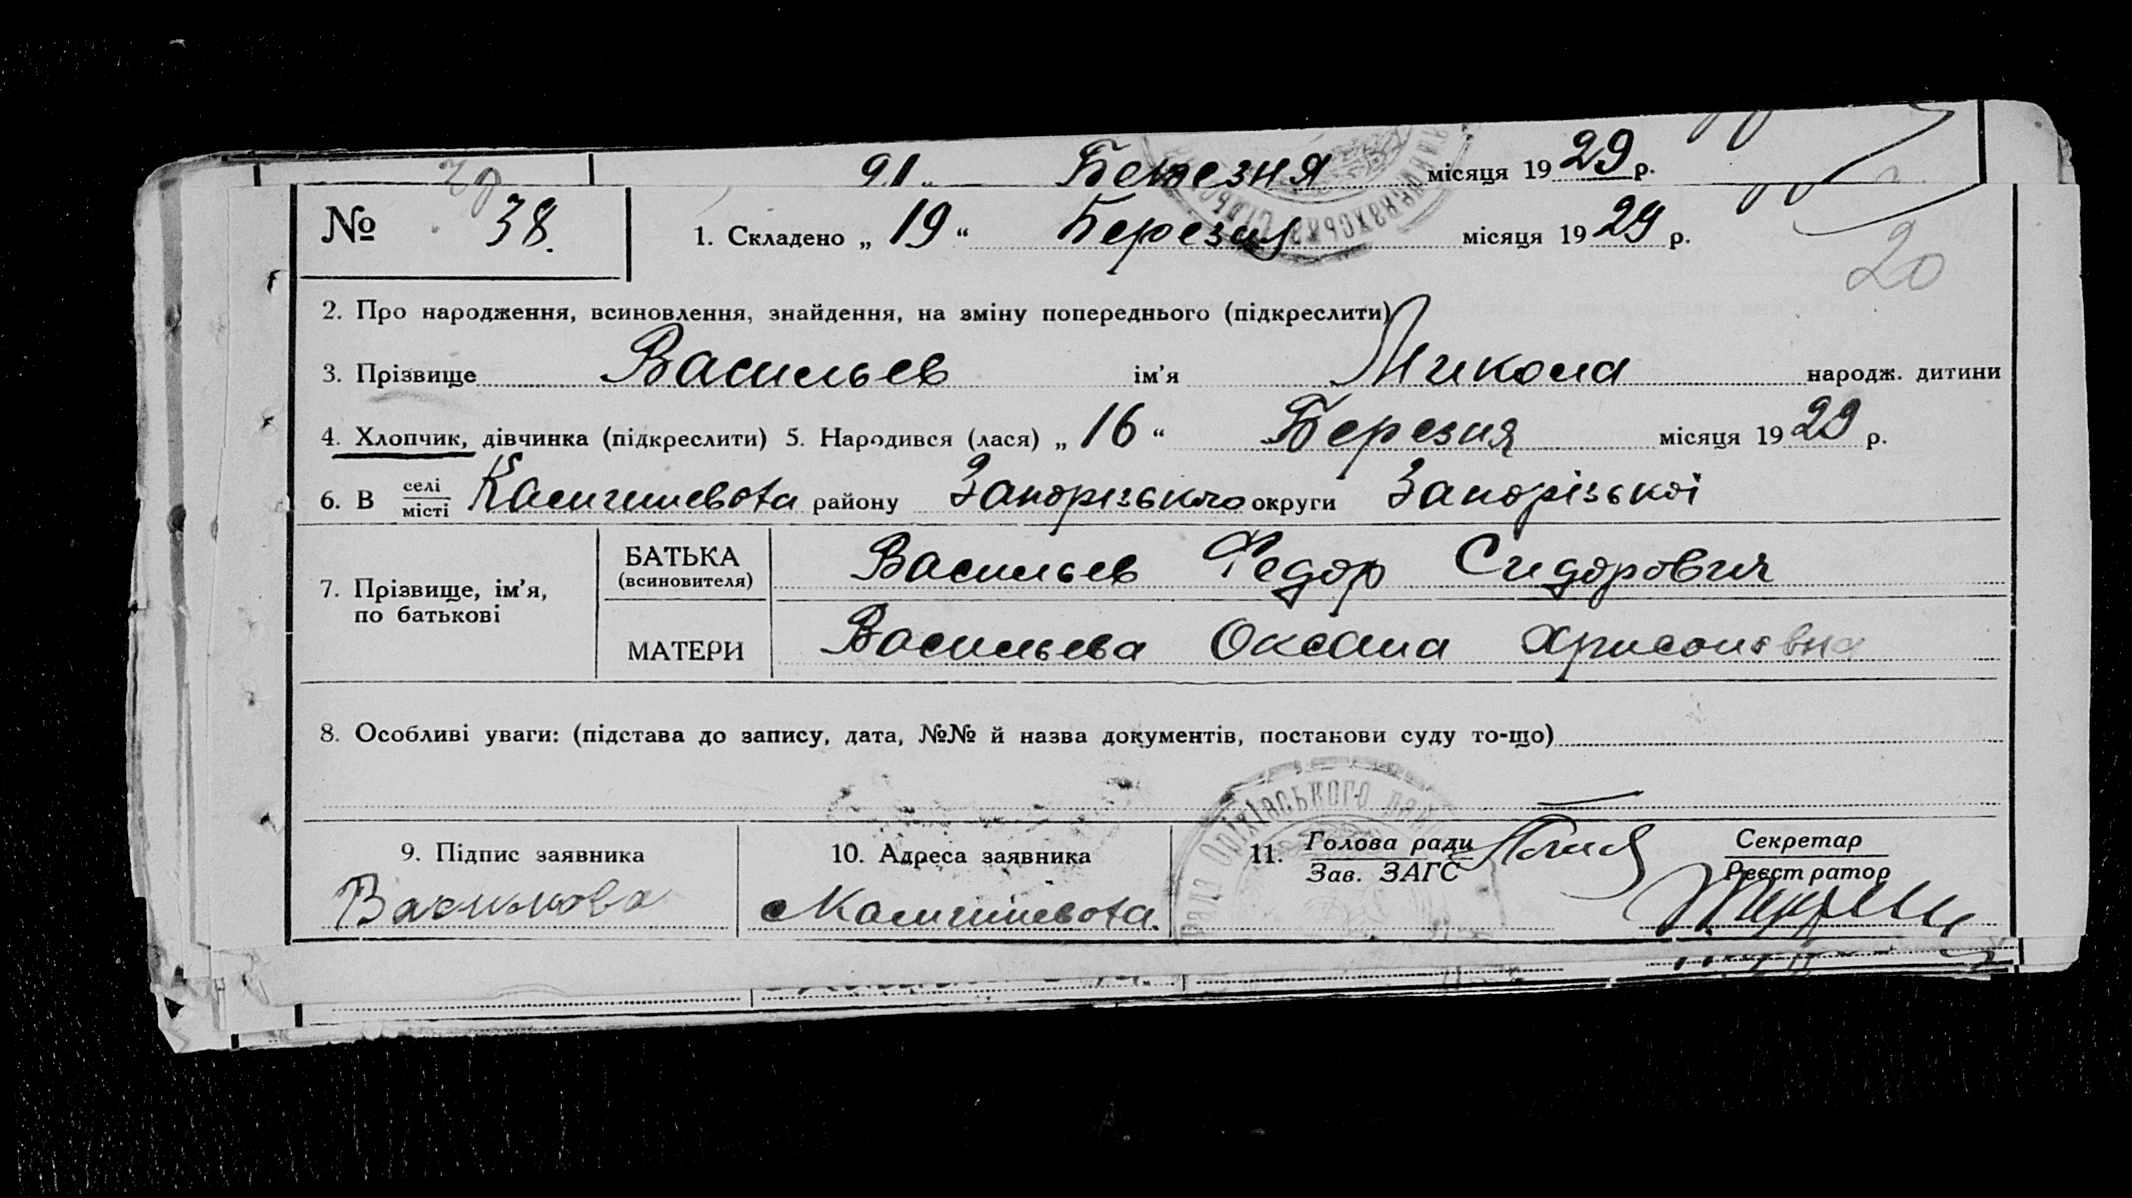 91 " Березня місяця 1929 р.
№ 38. 1. Складено „ 19 “ Березня місяця 1929 р.
20
2. Про народження, всиновлення, знайдення, на зміну попереднього (підкреслити)
3. Прізвище Васильев ім’я Микола народж. дитини
4. Хлопчик, дівчинка (підкреслити) 5. Народився (лася) „ 16 “ Березня місяця 1929 р.
6. В селі району Запорізького округи Запорізької
місті
7. Прізвище, ім’я,
по батькові
БАТЬКА
(всиновителя)
Васильев Федор Сидорович
МАТЕРИ
Васильева Оксана
8. Особливі уваги: (підстава до запису, дата, №№ й назва документів, постанови суду то-що)
рада Оріхівського рай
9. Підпис заявника
10. Адреса заявника
11. Голова ради
Зав. ЗАГС
Секретар
Реєстратор